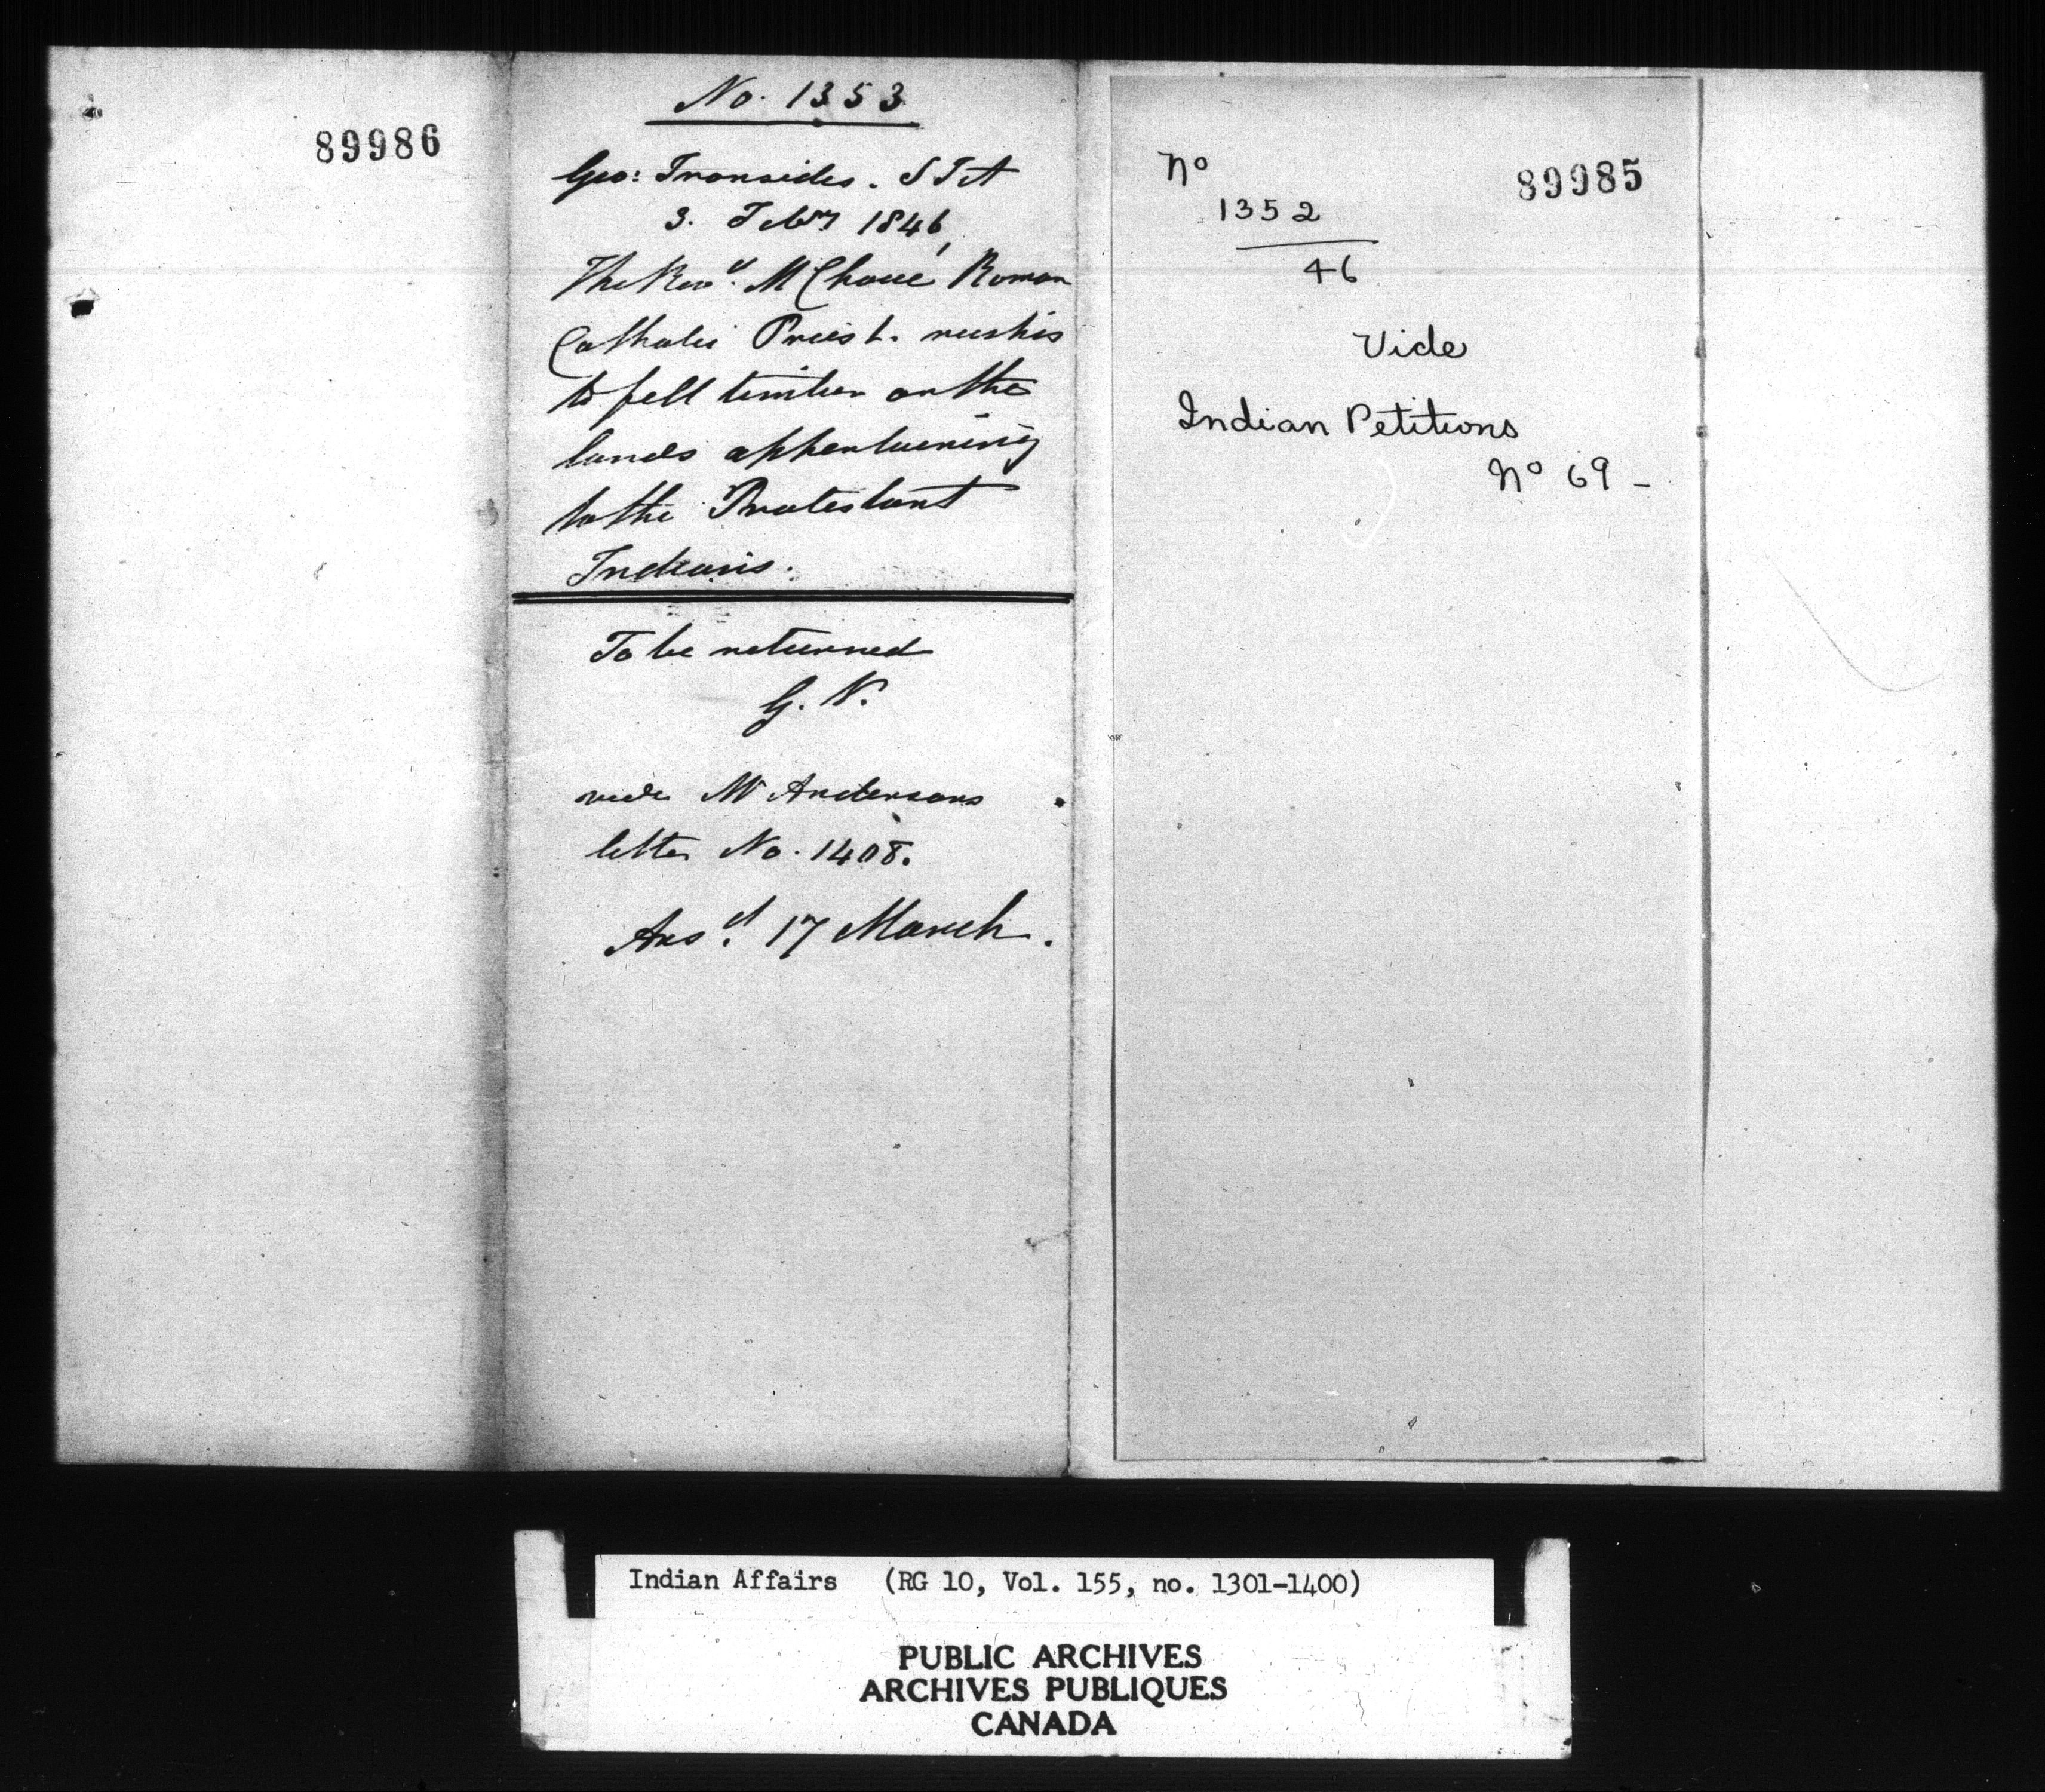 89986
No. 1353
Geo: Ironsides. S I A
3. Feby 1846,
The Revd. M Choné Roman
Catholic Priest. wishes
to fell timber on the
lands appertaining
to the Protestant
Indians.
To be returned
G. V.
vide Mr Andersons
letter No. 1408.
Ansd. 17 March.
No
89985
1352
46
Vide
Indian Petitions
No 69 -
Indian Affairs (RG 10, Vol. 155, no. 1301-1400)
PUBLIC ARCHIVES
ARCHIVES PUBLIQUES
CANADA